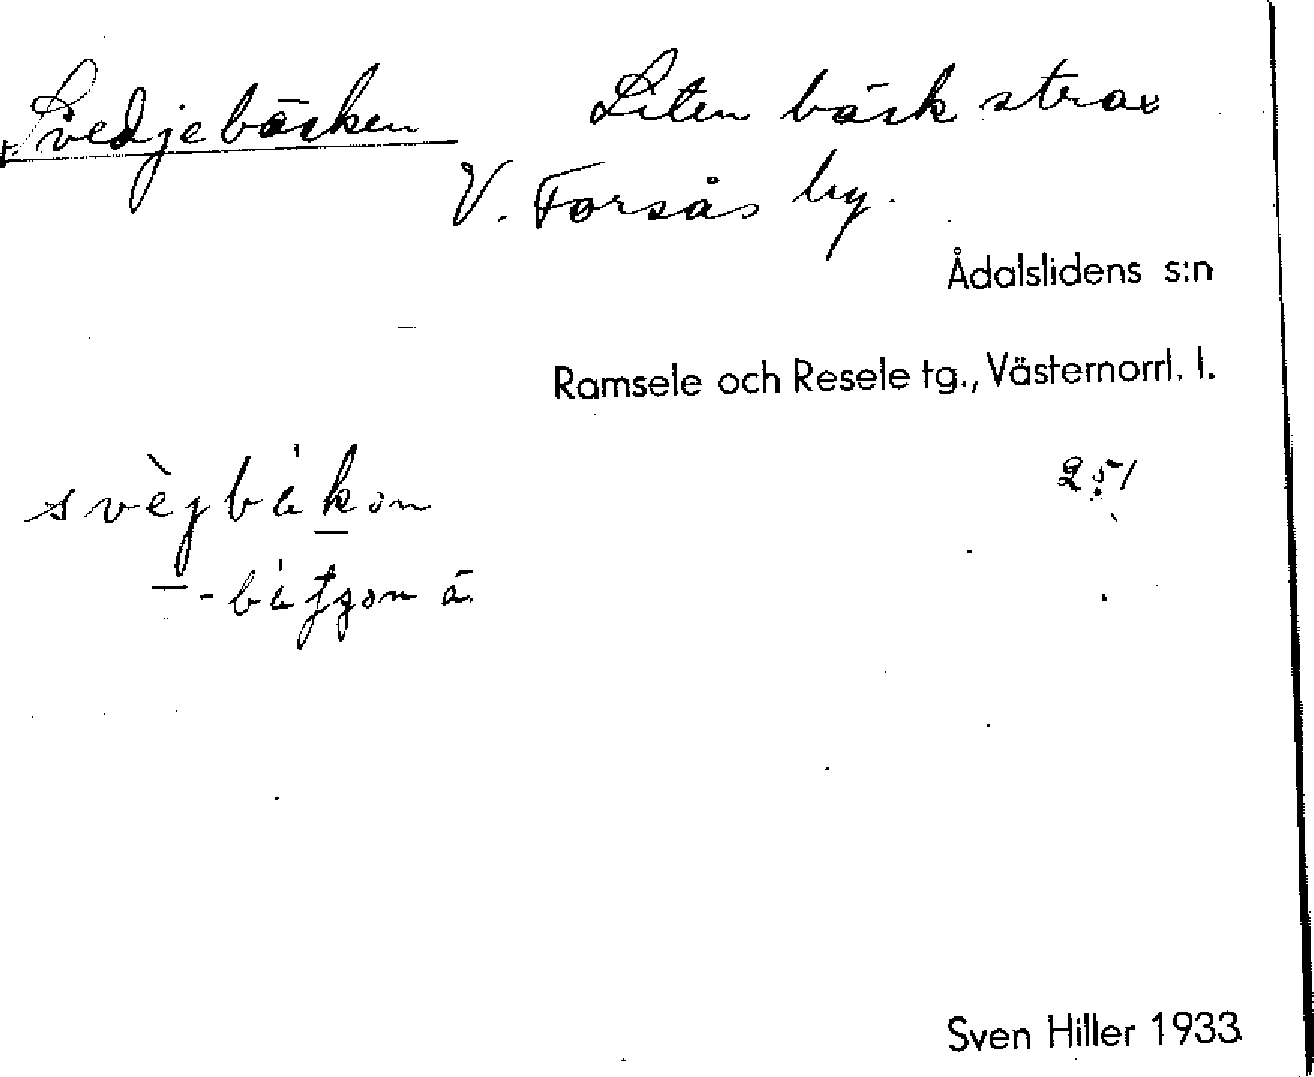 Svedjebäcken
Liten bäck strax
V. Forsås by.
Ådalslidens s:n
Ramsele och Resele tg., Västernorrl. l.
251
Sven Hiller 1933